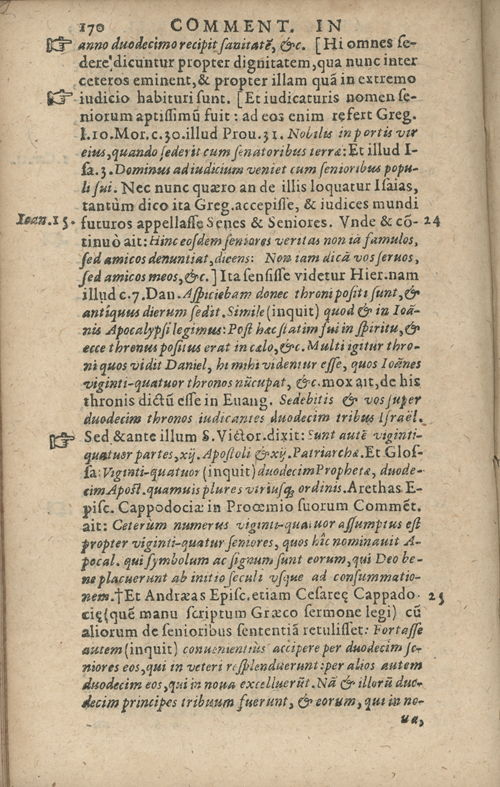 170 COMMENT. IN
anno duodecimo recipit sanitatē, &c. [Hi omnes se-
dere dicuntur propter dignitatem, qua nunc inter
ceteros eminent, & propter illam quā in extremo
iudicio habituri sunt. [Et iudicaturis nomen se-
niorum aptissimū fuit: ad eos enim refert Greg.
l.10.Mor.c.30.illud Prou.31. Nobilis in portis vir
eius, quando sederit cum senatoribus terræ: Et illud I-
sa.3. Dominus ad iudicium veniet cum senioribus popu-
li sui. Nec nunc quæro an de illis loquatur Isaias,
tantùm dico ita Greg. accepisse, & iudices mundi
Ioan.15. futuros appellasse Senes & Seniores. Vnde & cō- 24
tinuò ait: Hinc eosdem seniores veritas non iā famulos,
sed amicos denuntiat, dicens: Non iam dicā vos seruos,
sed amicos meos, &c.] Ita sensisse videtur Hier. nam
illud c.7. Dan. Aspiciebam donec throni positi sunt, &
antiquus dierum sedit. Simile (inquit) quod & in Ioā-
nis Apocalypsi legimus: Post hæc statim fui in spiritu, &
ecce thronus positus erat in cælo, &c. Multi igitur thro-
ni quos vidit Daniel, hi mihi videntur esse, quos Ioānes
viginti-quatuor thronos nūcupat, &c. mox ait, de his
thronis dictū esse in Euang. Sedebitis & vos super
duodecim thronos iudicantes duodecim tribus Israël.
Sed & ante illum S. Victor. dixit: Sunt autē viginti-
quatuor partes, xij. Apostoli & xij. Patriarchæ. Et Glos-
sa: Viginti-quatuor (inquit) duodecim Prophetæ, duode-
cim Apost. quamuis plures vtriusq; ordinis. Arethas E-
pisc. Cappodociæ in Proœmio suorum Commēt.
ait: Ceterùm numerus viginti-quatuor assumptus est
propter viginti-quatur seniores, quos hîc nominauit A-
pocal. qui symbolum ac signum sunt eorum, qui Deo be-
ne placuerunt ab initio seculi vsque ad consummatio-
nem. †Et Andræas Episc. etiam Cesareę Cappado- 25
cię (quē manu scriptum Græco sermone legi) cū
aliorum de senioribus sententiā retulisset: Fortasse
autem (inquit) conuenientius accipere per duodecim se-
niores eos, qui in veteri resplenduerunt: per alios autem
duodecim eos, qui in noua excelluerūt. Nā & illorū duo-
decim principes tribuum fuerunt, & eorum, qui in no-
ua,